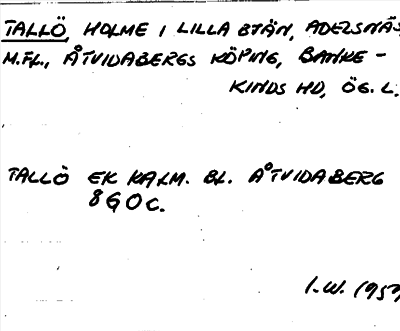 TALLÖ, HOLME I LILLA BYÄN, ADELSNÄS
M.FL., ÅTVIDABERGS KÖPING, BANKE-
KINDS HD, ÖG. L.
TALLÖ EK KALM. BL. ÅTVIDABERG
8G0C.
I.W. 1959